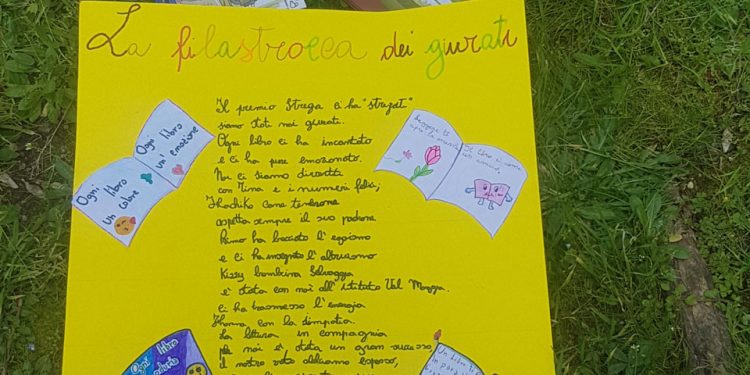 La filastrocca dei giurati
Il premio Strega ci ha "stregati"
siamo stati noi giurati.
Ogni libro ci ha incantato
e ci ha pure emozionato.
Noi ci siamo divertiti
con Tina e i numeri felici,
Hachiko come
aspetta sempre il suo padrone
Primo ha baciato l'egoismo
e ci ha insegnato l'altruismo
Kissy bambina Selvaggia
è stata con noi all'istituto Val Maggia.
ci ha trasmesso l'energia
con la simpatia.
La lettura in compagnia
per noi è stata un gran successo,
il nostro voto abbiamo espresso,
Ogni libro
un colore
Ogni libro
un'emozione
Leggere ti
apre la mente
Un libro è come
un amico
Ogni libro
Un libro